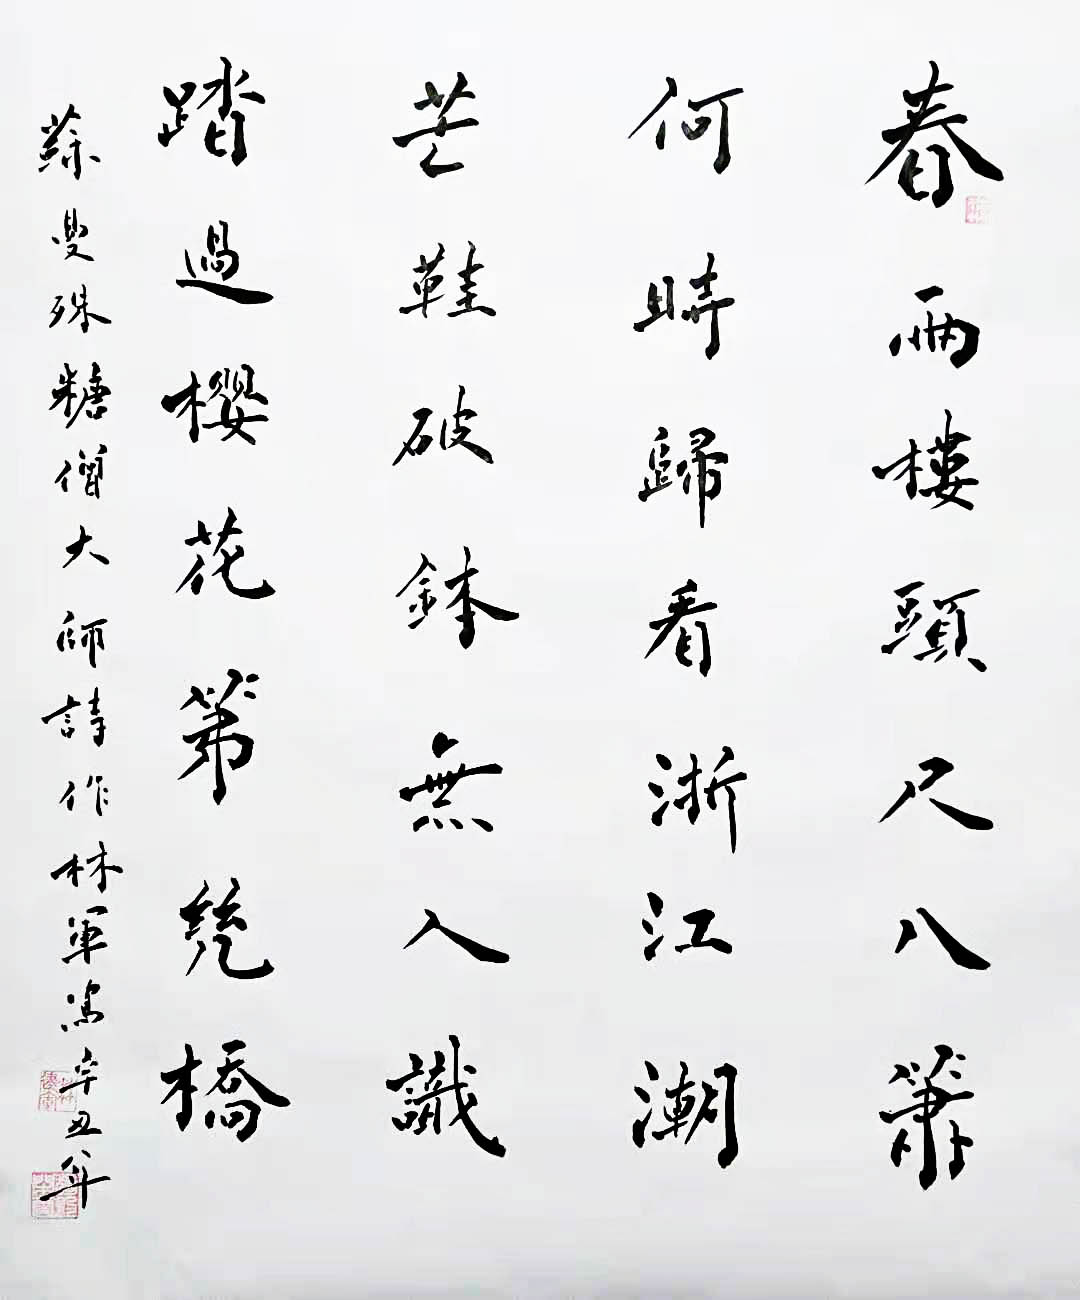 春雨樓頭尺八簫
何時歸看浙江潮
芒鞋破鉢無人識
踏過櫻花第幾橋
蘇曼殊糖僧大師詩作林軍寫辛丑年